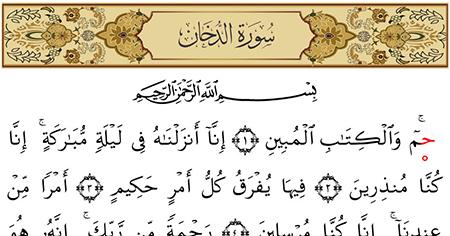 سُورَةُ الدُّخَانِ
بِسْمِ ٱللَّهِ ٱلرَّحْمَٰنِ ٱلرَّحِيمِ
حمٓ ۚ وَٱلْكِتَٰبِ ٱلْمُبِينِ ﴿١﴾ إِنَّآ أَنزَلْنَٰهُ فِى لَيْلَةٍ مُّبَٰرَكَةٍ ۚ إِنَّا
كُنَّا مُنذِرِينَ ﴿٢﴾ فِيهَا يُفْرَقُ كُلُّ أَمْرٍ حَكِيمٍ ﴿٣﴾ أَمْرًا مِّنْ
عِندِنَآ ۚ إِنَّا كُنَّا مُرْسِلِينَ ﴿٤﴾ رَحْمَةً مِّن رَّبِّكَ ۚ إِنَّهُۥ هُوَ